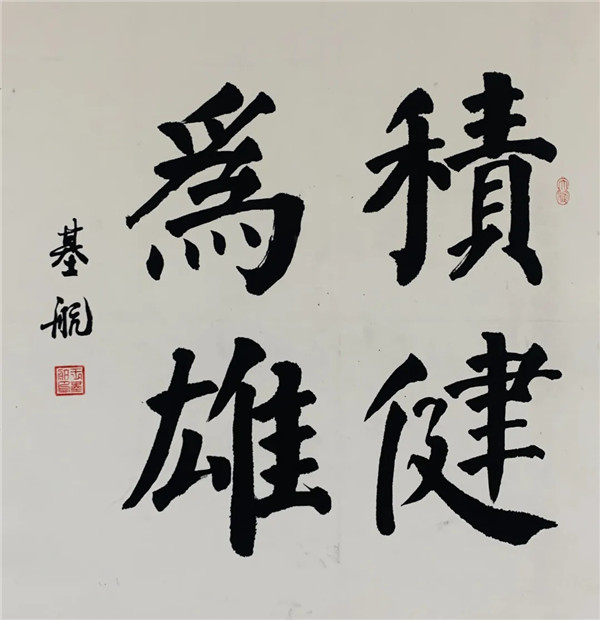 積健
爲雄
基航